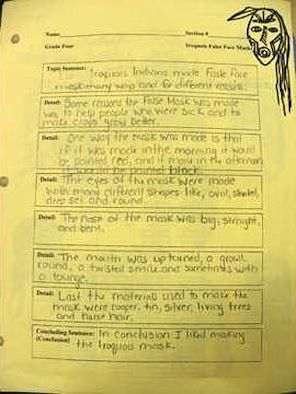 Name Section #
Grade Four Iroquois False Face Mask
Topic Sentence: Iroquois Indians made false face
mask many way and for different reasons.
Detail: Some reasons the False Mask was made
was to help people who were sick and to
make crops grow better.
Detail: One way the mask was made is that
if it was made in the morning it would
be painted red, and if made in the afternoon
it would be painted black.
Detail: The eyes of the mask were made
with many different shapes like, oval, slanted,
deep set and round.
Detail: The nose of the mask was big, straight,
and bent.
Detail: The mouth was upturned, a growl,
round, a twisted smile and sometimes with
a tounge.
Detail: Last the materials used to make the
mask were cooper, tin, silver, living trees
and horse hair.
Concluding Sentence: In conclusion I liked making
(Conclusion) the Iroquois mask.